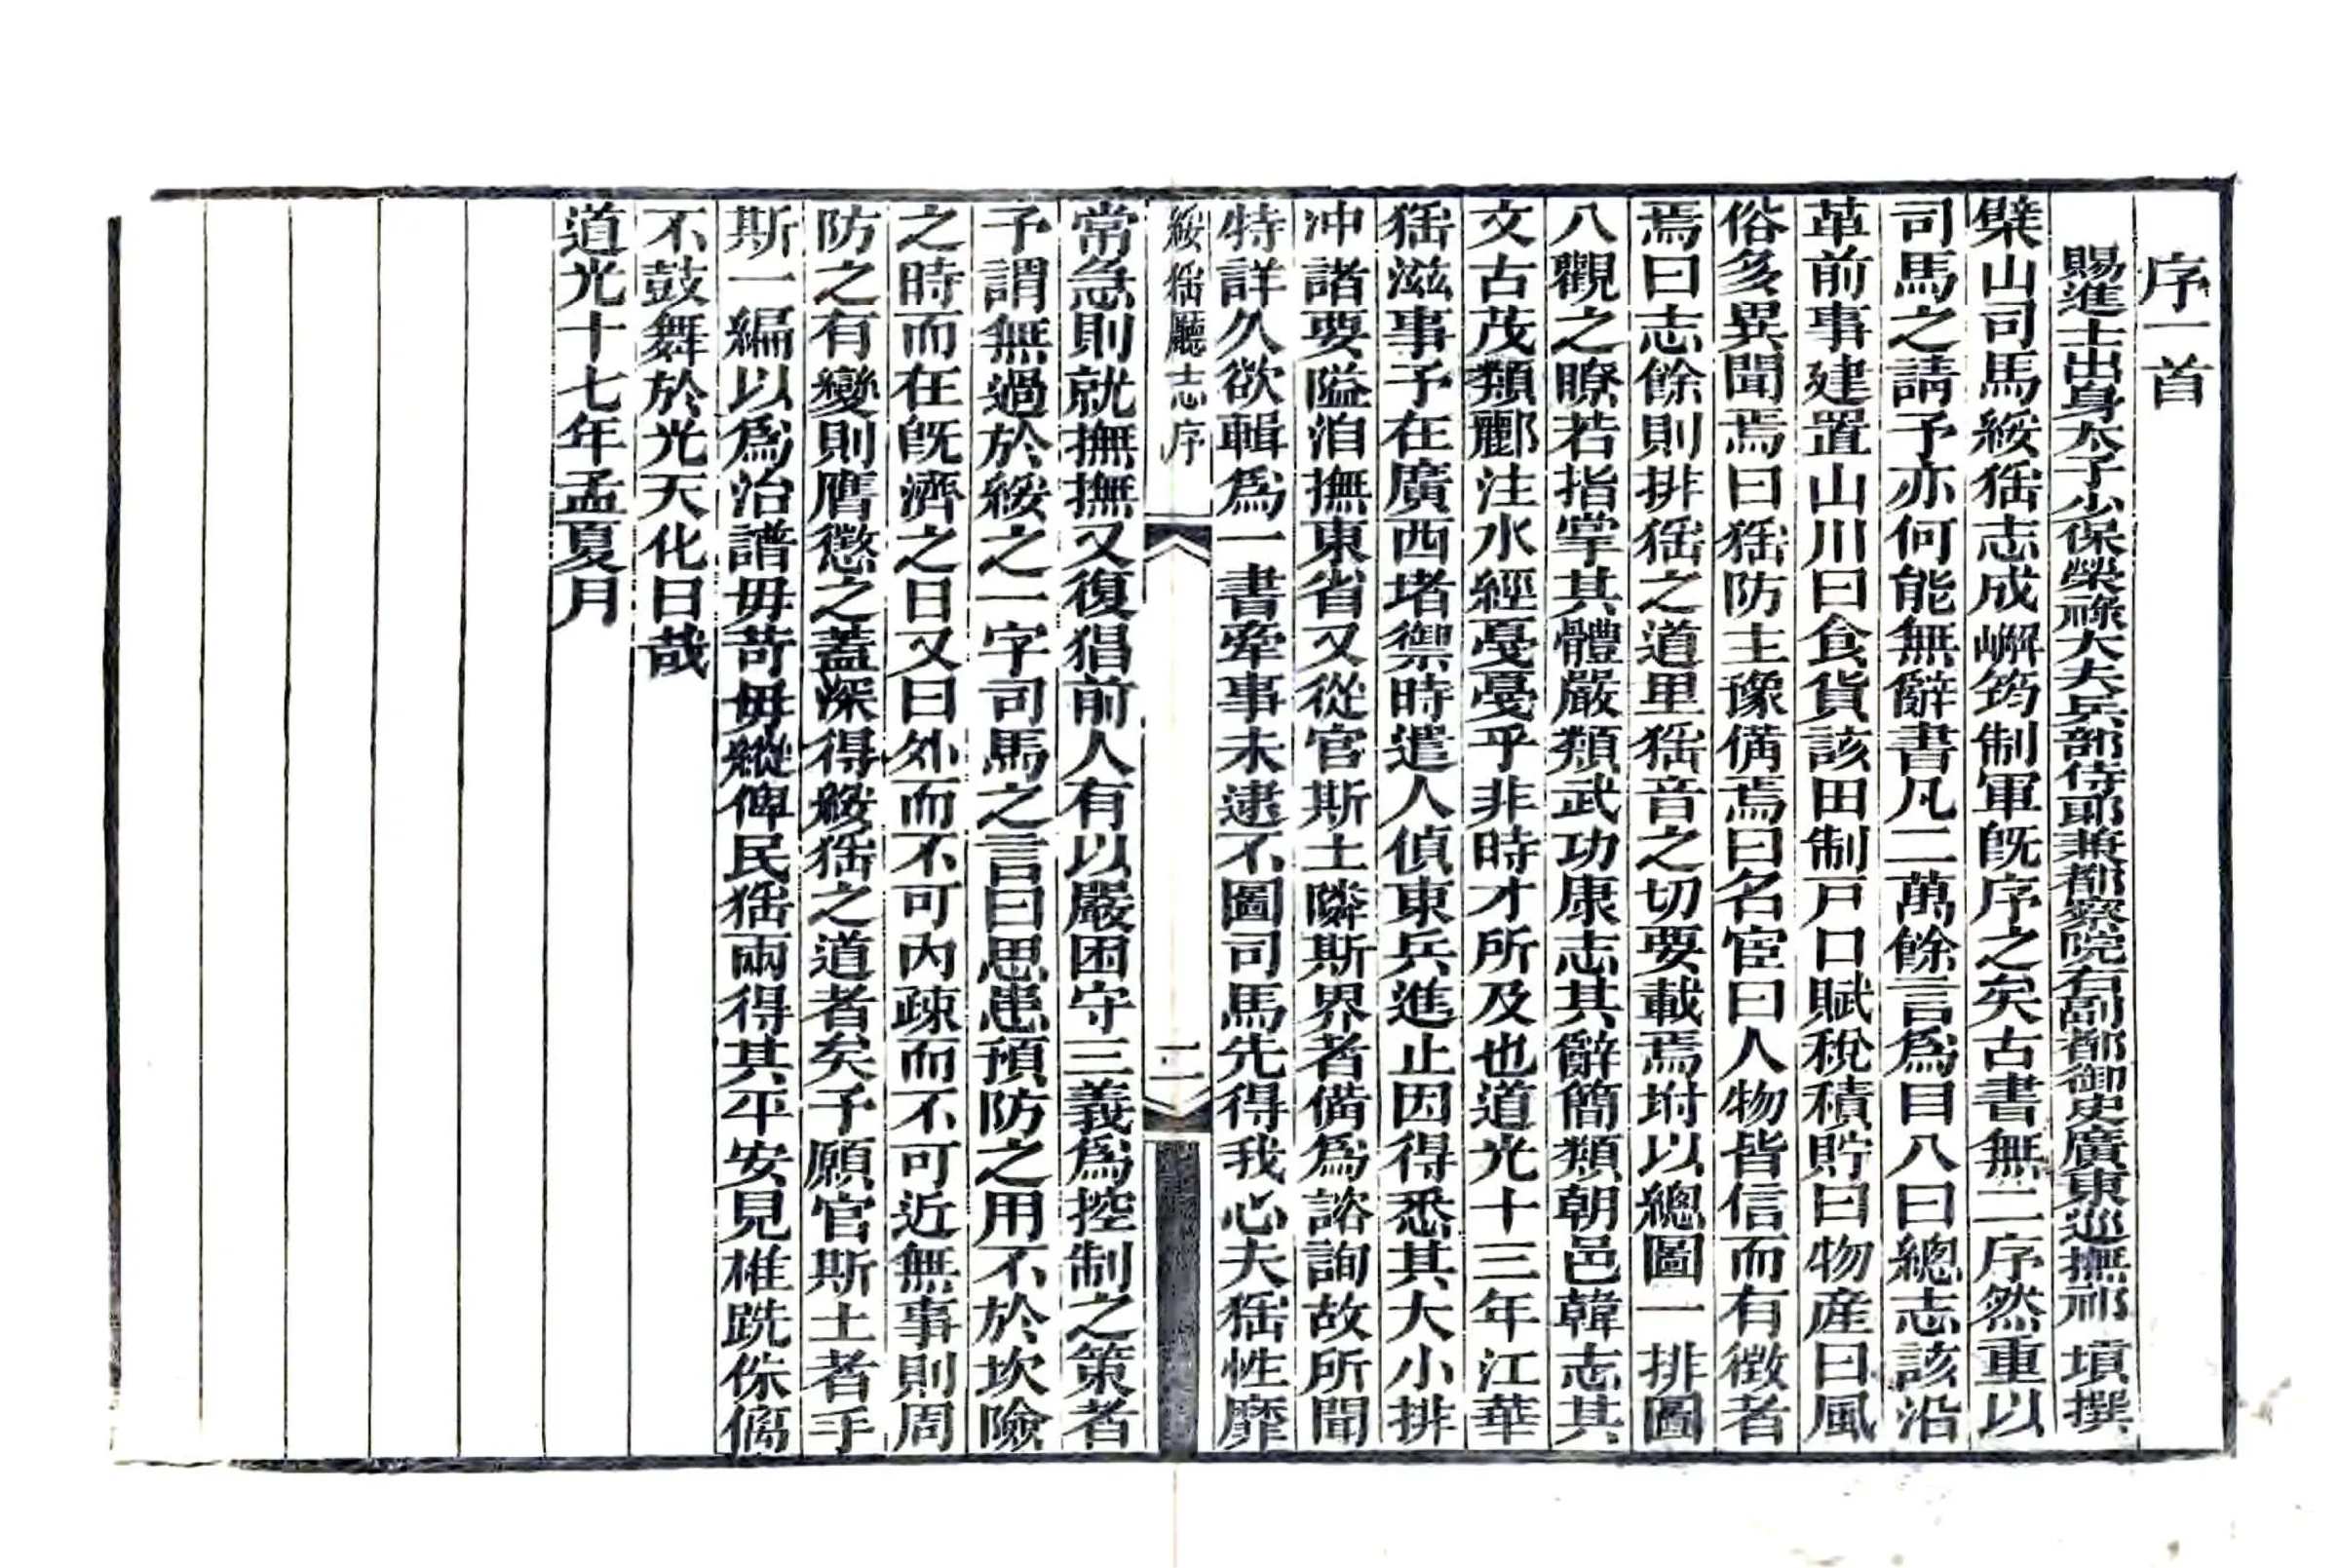 序一首
賜進士出身太子少保榮祿大夫兵部侍郎兼都察院右副都御史廣東巡撫祁 𡎴撰
檗山司馬綏猺志成嶰筠制軍旣序之矣古書無二序然重以
司馬之請予亦何能無辭書凡二萬餘言爲目八曰總志該沿
革前事建置山川曰食貨該田制戸口賦稅積貯曰物産曰風
俗多異聞焉曰猺防主豫僃焉曰名宦曰人物皆信而有徵者
焉曰志餘則排猺之道里猺音之切要載焉坿以總圖一排圖
八觀之瞭若指掌其體嚴類武功康志其辭簡類朝邑韓志其
文古茂類酈注水經戞戞乎非時才所及也道光十三年江華
猺滋事予在廣西堵禦時遣人偵東兵進止因得悉其大小排
冲諸要隘洎撫東省又從官斯土隣斯界者僃爲諮詢故所聞
特詳久欲輯爲一書牽事未逮不圖司馬先得我心夫猺性靡
綏猺廳志序
二
常急則就撫撫又復猖前人有以嚴困守三義爲控制之策者
予謂無過於綏之一字司馬之言曰思患預防之用不於坎險
之時而在旣濟之日又曰外而不可內疎而不可近無事則周
防之有變則膺懲之蓋深得綏猺之道者矣予願官斯土者手
斯一編以爲治譜毋苛毋縱俾民猺兩得其平安見椎跣侏儷
不鼓舞於光天化日哉
道光十七年孟夏月